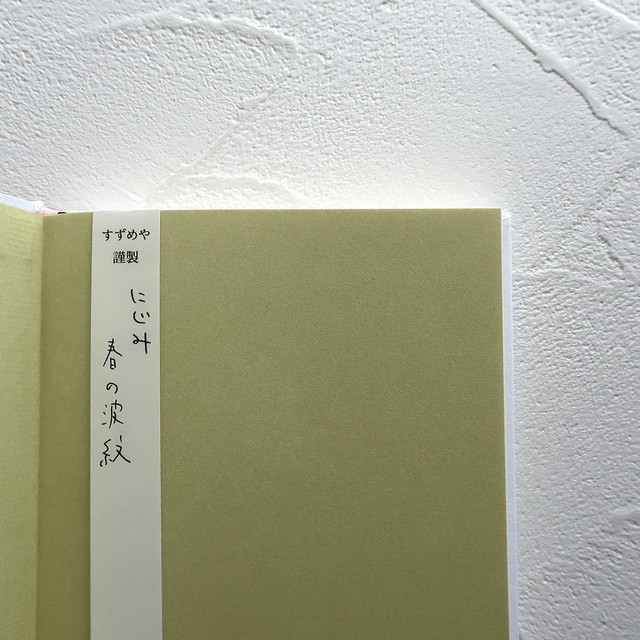 すずめや
謹製
にじみ
春の波紋